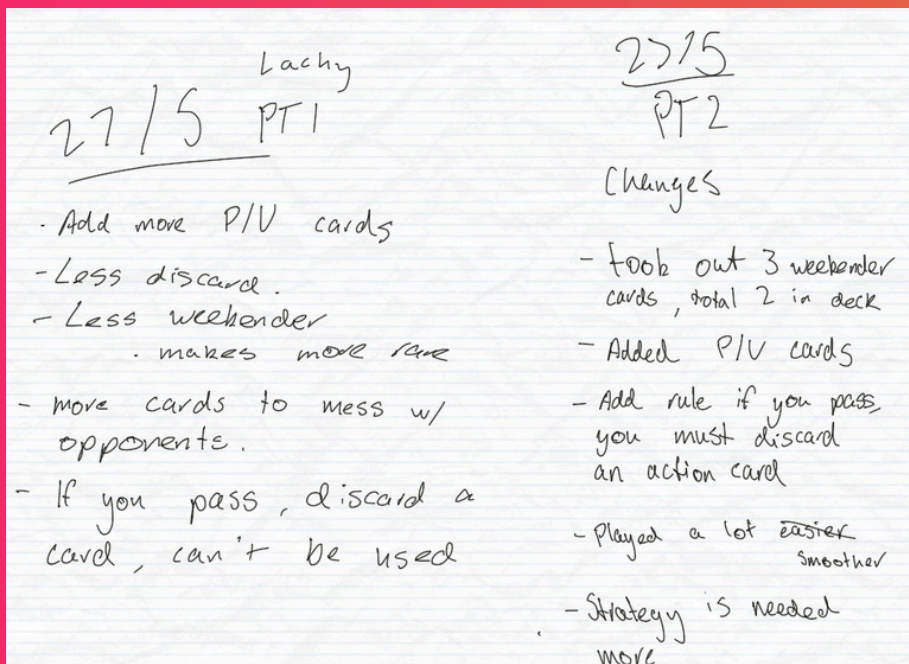 Lachy
27/5 PT1
· Add more P/V cards
- Less discard.
- Less weekender
· makes more rare
- more cards to mess w/
opponents.
- If you pass, discard a
card, can't be used
27/5
PT2
Changes
- took out 3 weekender
cards, total 2 in deck
- Added P/V cards
- Add rule if you pass,
you must discard
an action card
- Played a lot easier
smoother
- Strategy is needed
more